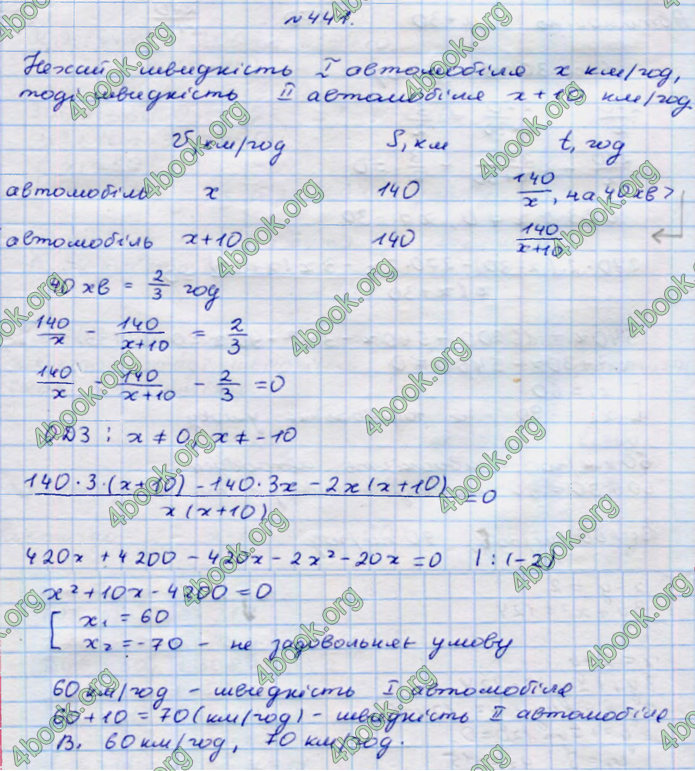 № 441.
Нехай швидкість I автомобіля x км/год,
тоді швидкість II автомобіля x+10 км/год
V, км/год S, км t, год
автомобіль x 140 140/x, на 40хв >
автомобіль x+10 140 140/(x+10)
40 хв = 2/3 год
140/x - 140/(x+10) = 2/3
140/x - 140/(x+10) - 2/3 = 0
ОДЗ: x ≠ 0, x ≠ -10
(140·3·(x+10) - 140·3x - 2x(x+10))/(x(x+10)) = 0
420x + 4200 - 420x - 2x² - 20x = 0 | : (-2)
x² + 10x - 4200 = 0
[ x₁ = 60
x₂ = -70 - не задовольняє умову
60 км/год - швидкість I автомобіля
60+10 = 70 (км/год) - швидкість II автомобіля
В. 60 км/год, 70 км/год.
4book.org